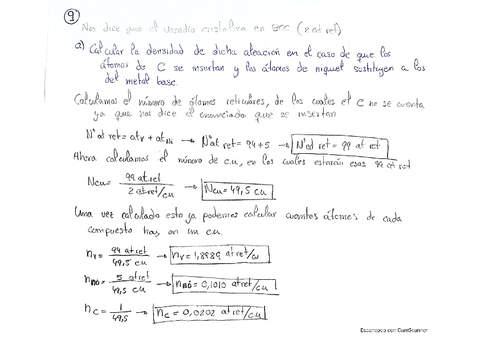 9
Nos dice que el vanadio cristaliza en BCC (2 at ret)
a) Calcular la densidad de dicha aleación en el caso de que los
átomos de C se insertan y los átomos de niquel sustituyen a los
del metal base.
Calculamos el número de átomos reticulares, de los cuales el C no se cuenta
ya que nos dice el enunciado que se insertan
Nºat ret = atv + atNi → Nºat ret = 94+5 → Nºat ret = 99 at ret
Ahora calculamos el número de cu, en los cuales estarán esos 99 at ret
Ncu = 99 at ret / 2 at ret/cu → Ncu = 49,5 cu
Una vez calculado esto ya podemos calcular cuantos átomos de cada
compuesto hay en un cu.
nv = 94 at ret / 49,5 cu → nv = 1,8989 at ret/cu
5 at ret / 49,5 cu → = 0,1010 at ret/cu
nc = 1 / 49,5 → nc = 0,0202 at ret/cu
Escaneado con CamScanner